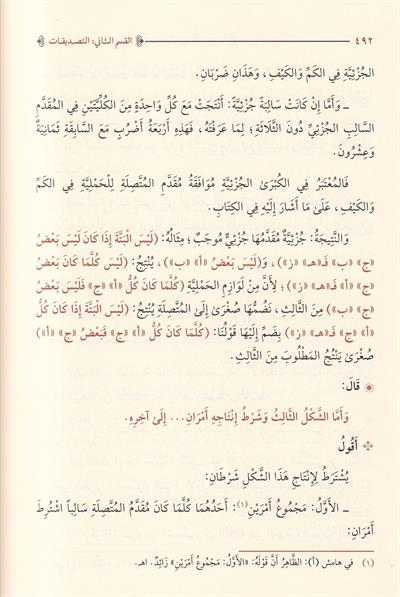 ٤٩٢ القسم الثاني: التصديقات
الجُزْئِيَّةِ فِي الكَمِّ وَالكَيْفِ، وَهَذَانِ ضَرْبَانِ.
ـ وَأَمَّا إِنْ كَانَتْ سَالِبَةً جُزْئِيَّةً: أَنْتَجَتْ مَعَ كُلِّ وَاحِدَةٍ مِنَ الكُلِّيَّتَيْنِ فِي المُقَدَّمِ
السَّالِبِ الجُزْئِيِّ دُونَ الثَّلَاثَةِ؛ لِمَا عَرَفْتَهُ، فَهَذِهِ أَرْبَعَةُ أَضْرُبٍ مَعَ السَّابِقَةِ ثَمَانِيَةٌ
وَعِشْرُونَ.
فَالمُعْتَبَرُ فِي الكُبْرَىٰ الجُزْئِيَّةِ مُوَافَقَةُ مُقَدَّمِ المُتَّصِلَةِ لِلْحَمْلِيَّةِ فِي الكَمِّ
وَالكَيْفِ، عَلَىٰ مَا أَشَارَ إِلَيْهِ فِي الكِتَابِ.
وَالنَّتِيجَةُ: جُزْئِيَّةٌ مُقَدَّمُهَا جُزْئِيٌّ مُوجَبٌ؛ مِثَالُهُ: (لَيْسَ الْبَتَّةَ إِذَا كَانَ لَيْسَ بَعْضُ
«ج» «ب» فَـ«هـ» «ز»)، وَ(لَيْسَ بَعْضُ «أ» «ب»)، يُنْتِجُ: (لَيْسَ كُلَّمَا كَانَ بَعْضُ
«ج» «أ» فَـ«هـ» «ز»)؛ لِأَنَّ مِنْ لَوَازِمِ الحَمْلِيَّةِ (كُلَّمَا كَانَ كُلُّ «أ» «ج» فَلَيْسَ بَعْضُ
«ج» «ب») مِنَ الثَّالِثِ، نَضُمُّهَا صُغْرَىٰ إِلَىٰ المُتَّصِلَةِ يُنْتِجُ: (لَيْسَ الْبَتَّةَ إِذَا كَانَ كُلُّ
«أ» «ج» فَـ«هـ» «ز»)؛ بِضَمِّ إِلَيْهَا قَوْلُنَا: (كُلَّمَا كَانَ كُلُّ «أ» «ج» فَبَعْضُ «ج» «أ»)
صُغْرَىٰ يَنْتُجُ المَطْلُوبَ مِنَ الثَّالِثِ.
قَالَ:
وَأَمَّا الشَّكْلُ الثَّالِثُ وَشَرْطُ إِنْتَاجِهِ أَمْرَانِ... إِلَىٰ آخِرِهِ.
أَقُولُ
يُشْتَرَطُ لِإِنْتَاجِ هَذَا الشَّكْلِ شَرْطَانِ:
ـ الأَوَّلُ: مَجْمُوعُ أَمْرَيْنِ(١): أَحَدُهُمَا كُلَّمَا كَانَ مُقَدَّمُ المُتَّصِلَةِ سَالِباً اشْتُرِطَ
أَمْرَانِ:
(١) في هامش (أ): الظَّاهِرُ أَنَّ قَوْلَهُ: «الأَوَّلُ: مَجْمُوعُ أَمْرَيْنِ» زَائِدٌ. اهـ.